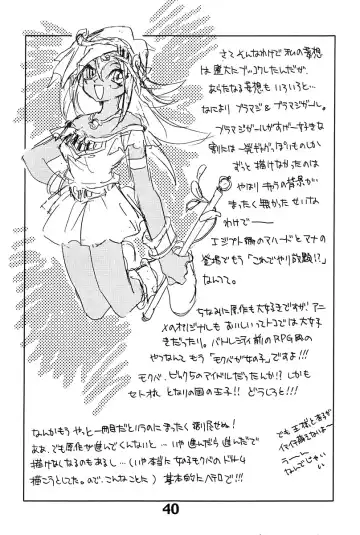 さてそんなわけで私の妄想
は盛大にブッコワしたんだが、
あらたなる妄想もいろいろと…
なによりブラマジ&ブラマジガール。
ブラマジガールがすげー好きな
割には一発ギャグっぽいものしか
ずっと描けなかったのは
やはりキャラの背景が
まったく無かったせいな
わけで──
エジプト編のマハードとマナの
登場でもう「これでやり放題!?」
なんつて。
ちなみに原作も大好きですが、アニ
メのオリジナルもおいしいってトコでは大好
きだったり。バトルシティ前のRPG風の
やつなんてもう「モクバが女の子」ですよ!!!
モクバ、ビックらのアイドルだったんか!? しかも
セト様、となりの国の王子!! どうしろと!!!
なんかもうやっと一冊目だというのにまったく描き足りぬ!
ああ、でも原作が進んでくんないと…いや進んだら進んだで
描けなくなるのもあるし…(いや本当に女の子モクバのドリーム
描こうとしてた。ので、こんなことに) 基本的にヘテロで!!!
でも王様と
イマイチ萌えないなー
うーん
なんでじゃい
40